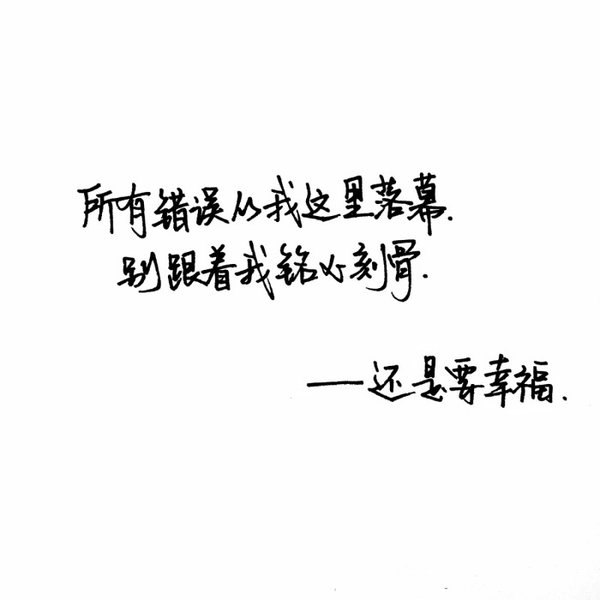 所有错误从我这里落幕.
别跟着我铭心刻骨.
——还是要幸福.